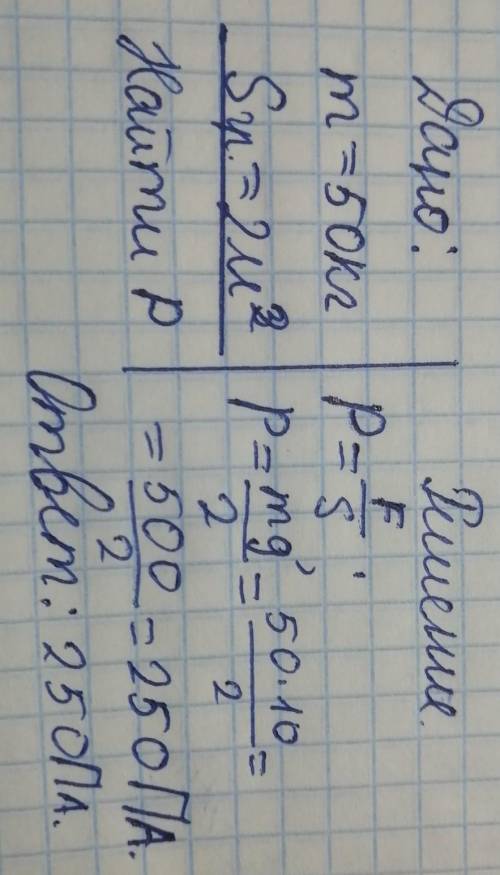 Дано:
m = 50кг
Sп. = 2м²
Найти p
Решение.
p = F/S.
p = mg/2 = 50·10/2 =
= 500/2 = 250 Па.
Ответ: 250 Па.